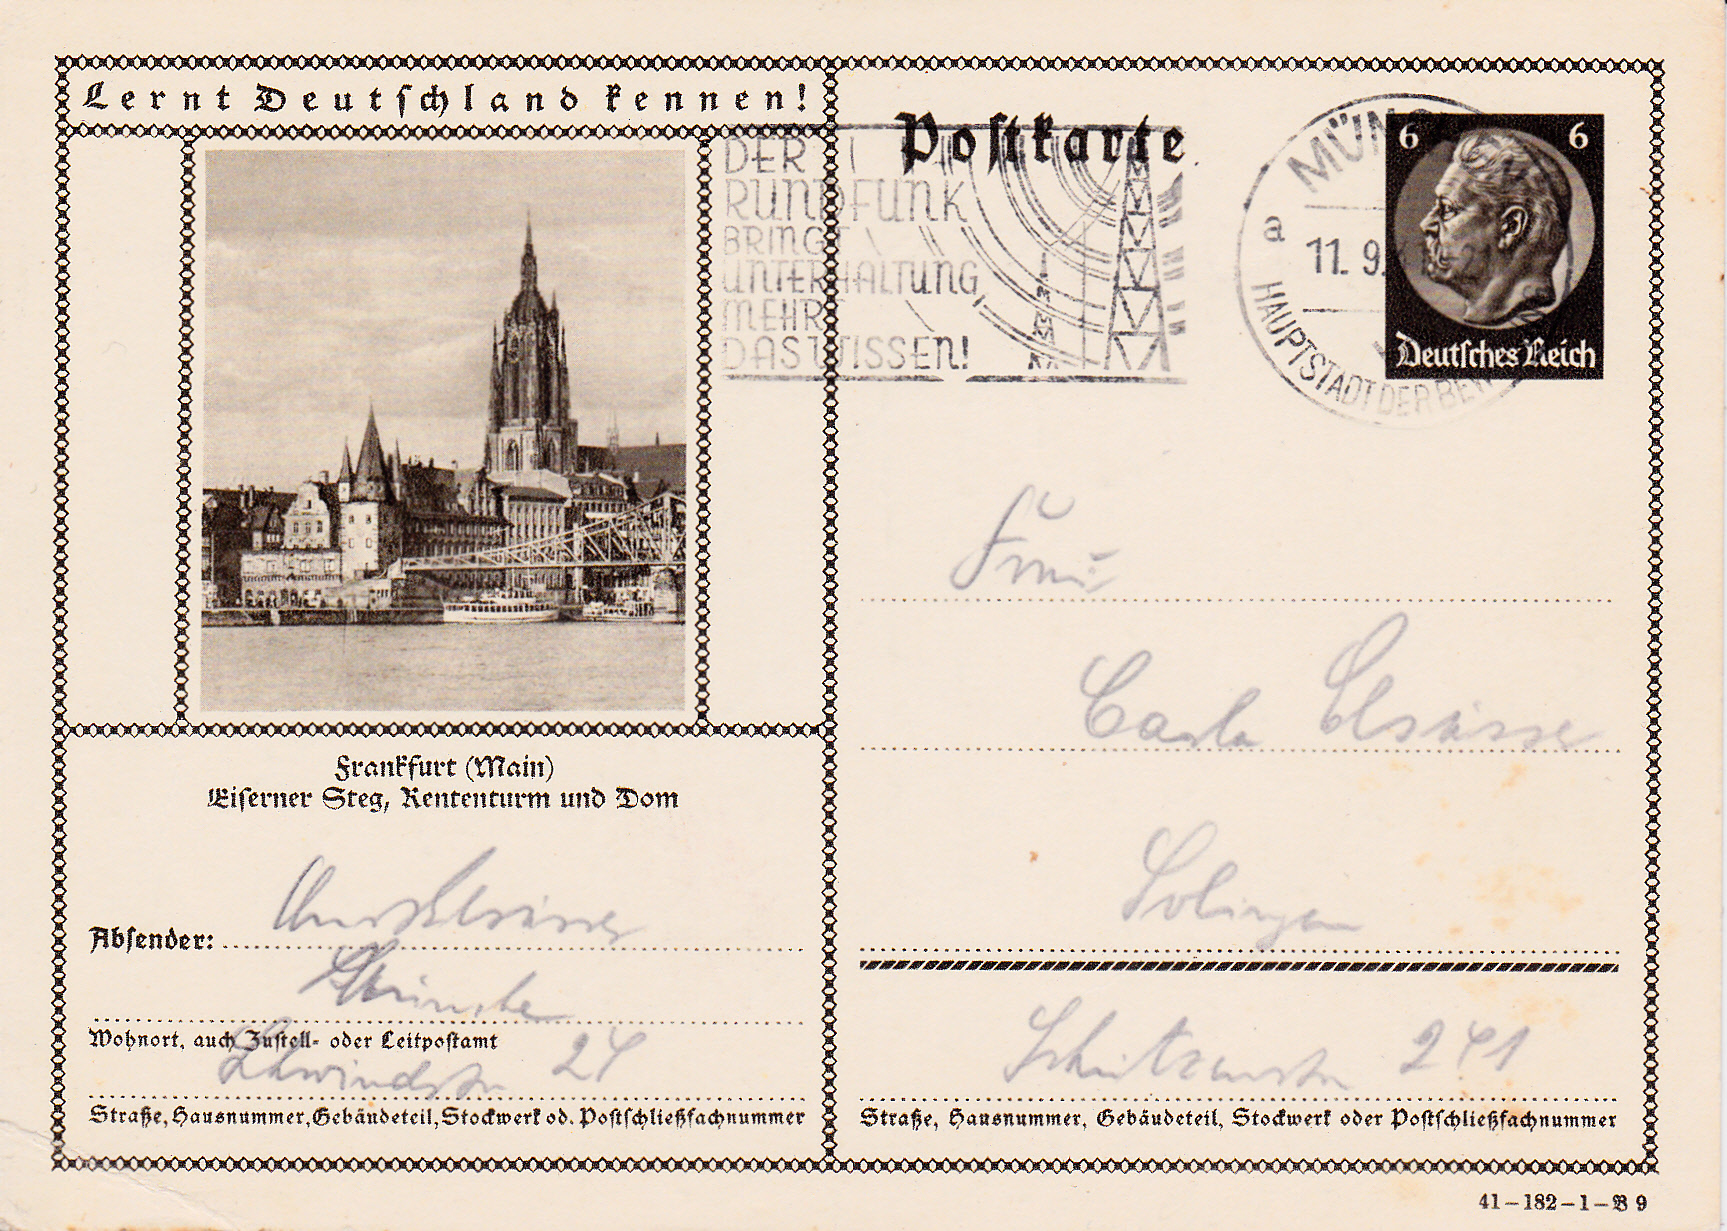 Lernt Deutschland kennen!
Postkarte
DER
RUNDFUNK
BRINGT
UNTERHALTUNG
MEHRT
DAS WISSEN!
a
11. 9.
HAUPTSTADT DER
6 6
Deutsches Reich
Frankfurt (Main)
Eiserner Steg, Rententurm und Dom
Absender:
Wohnort, auch Zustell- oder Leitpostamt
24
Straße, Hausnummer, Gebäudeteil, Stockwerk od. Postschließfachnummer
Frau
Carla Elsässer
Solingen
Schützenstr 241
Straße, Hausnummer, Gebäudeteil, Stockwerk oder Postschließfachnummer
41–182–1–B 9